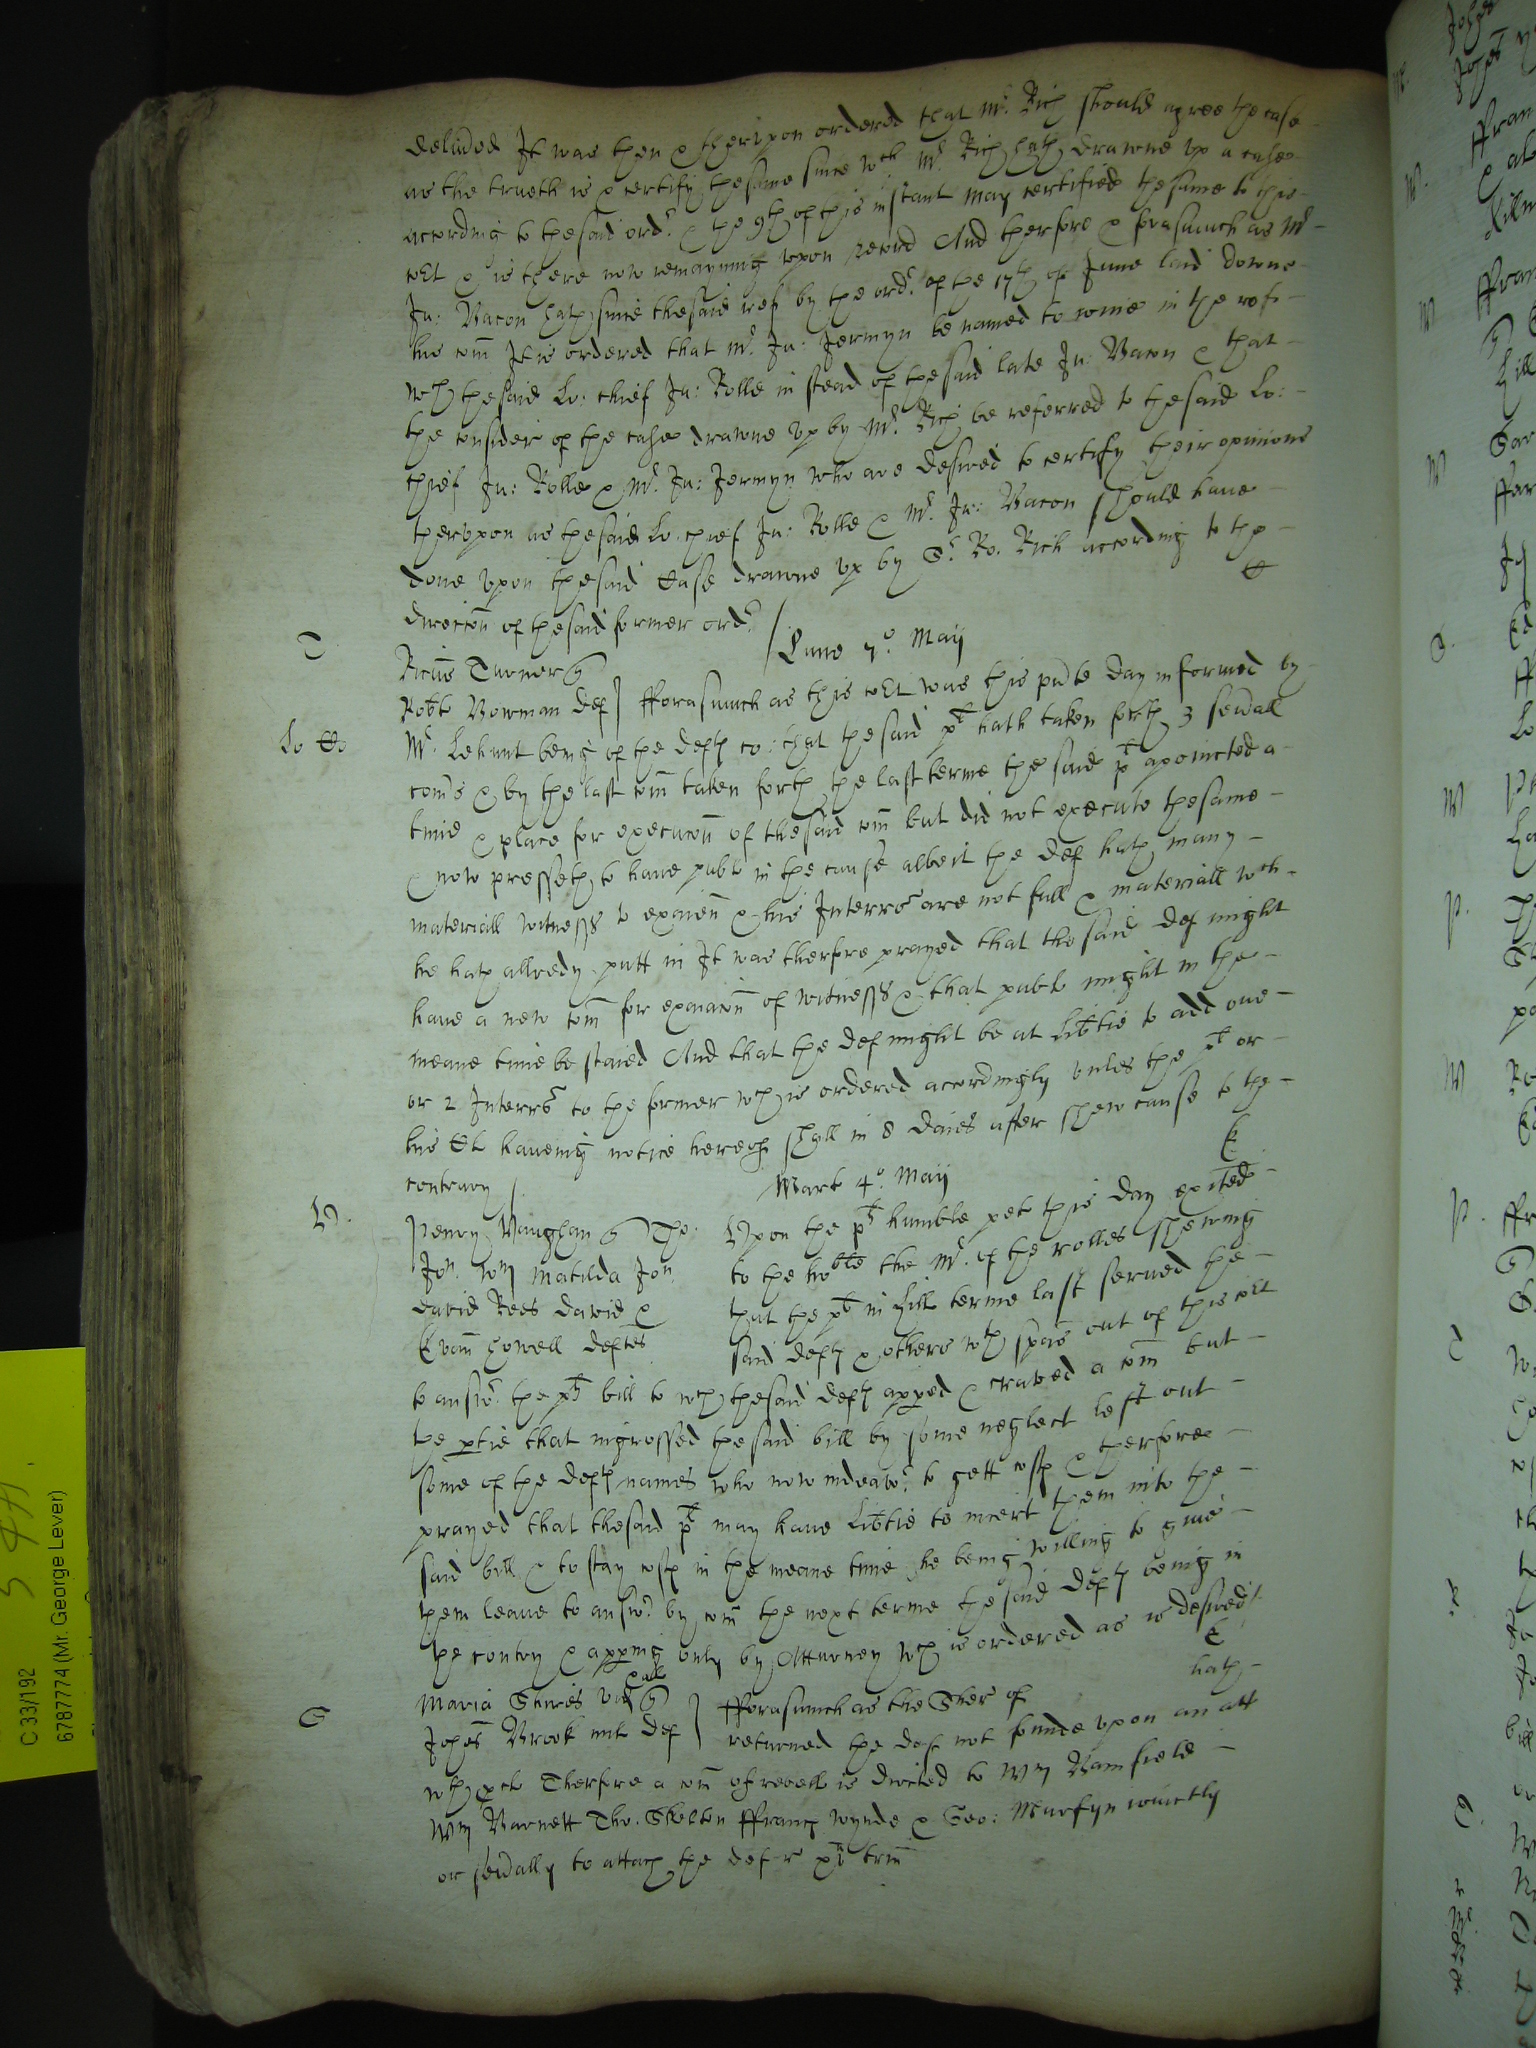 deluded It was then & therupon ordered that Mr. Rich should agree the case
as the trueth is & certify the same since wch Mr. Rich hath drawne up a case
according to the said ordr. & the 9th of this instant May certified the same to this
cot & is there now remayning upon record And therfore & forasmuch as Mr
Ju: Bacon hath since the said ref by the ordr. of the 17th of June laid downe
his com It is ordered that Mr. Ju: Jermyn be named to come in the ref
wth the said Lo: chief Ju: Rolle in stead of the said late Ju: Bacon & that
the consider of the case drawne up by Mr. Rich be referred to the said Lo:
chief Ju: Rolle & Mr. Ju: Jermyn who are desired to certify their opinions
therupon as the said Lo. chief Ju: Rolle & Mr. Ju: Bacon should have
done upon the said case drawne up by Sr. Ro. Rich according to the
direccon of the said former ordr.
Lune 7o. Maij
T
Ricus Turner q
Robto Bowman def fforasmuch as this cot was this pnte day informed by
Mr. Lehunt being of the defts co: that the said pt hath taken forth 3 sevall
coms & by the last com taken forth the last terme the said pt apointed a
time & place for execucon of the said com but did not execute the same
& now presseth to have publ in the cause albeit the def hath many
materiall witnesses to examen & his Interrs are not full & materiall wch
he hath allredy putt in It was therfore prayed that the said def might
have a new com for examacon of witnesses & that publ might in the
meane time be staied And that the def might be at libtie to add one
or 2 Interrs to the former wch is ordered accordingly unles the pt or
his Cl haveing notice hereof shall in 8 daies after shew cause to the
contrary
Mart 4o. Maij
V.
Henry Vaughan q Tho. Upon the pts humble pet this day exited
Jon. Wm Matilda Jon. to the hoble the Mr. of the rolles shewing
David Rees David & that the pt in Hill terme last served the
Evan Howell deftes said defts & others wth spas out of this cot
to answr. the pts bill to wch the said defts apped & craved a com but
the ptie that ingrossed the said bill by some neglect left out
some of the defts names who now indeavr. to gett costs & therfore
prayed that the said pt may have libtie to incert them into the
said bill & to stay costs in the meane time he being willing to give
them leave to answr. by com the next terme the said defts being in
the contry & apping only by Atturney wch is ordered as is desired
S
Maria Skires vid & al q fforasmuch as the Sher of hath
Johes Brook mil def returned the def not founde upon an att
wth pcl Therfore a com of rebell is direted to Wm Bamfield
Wm Barnett Tho. Skelton ffranc Wynde & Geo: Murfyn joinctly
or sevally to attach the def r pt trin
C 33/192
6787774 (Mr. George Lever)